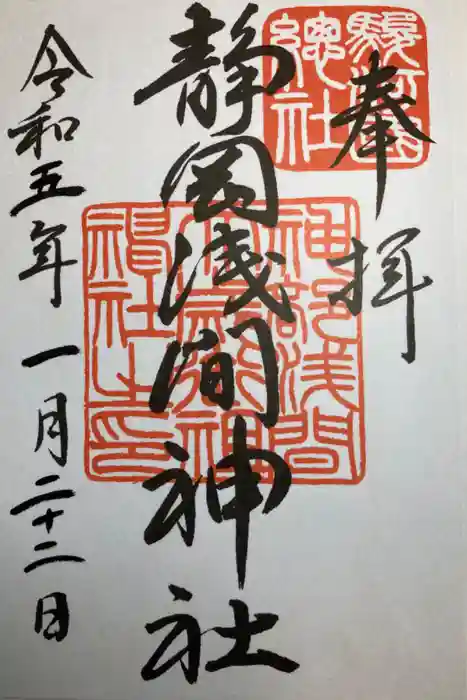 駿河國
總社
奉拝
静岡浅間神社
神部浅間
社之印
令和五年一月二十二日